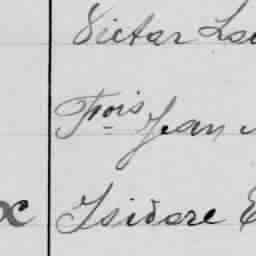 Victor
Frois Jean
x Isidore E